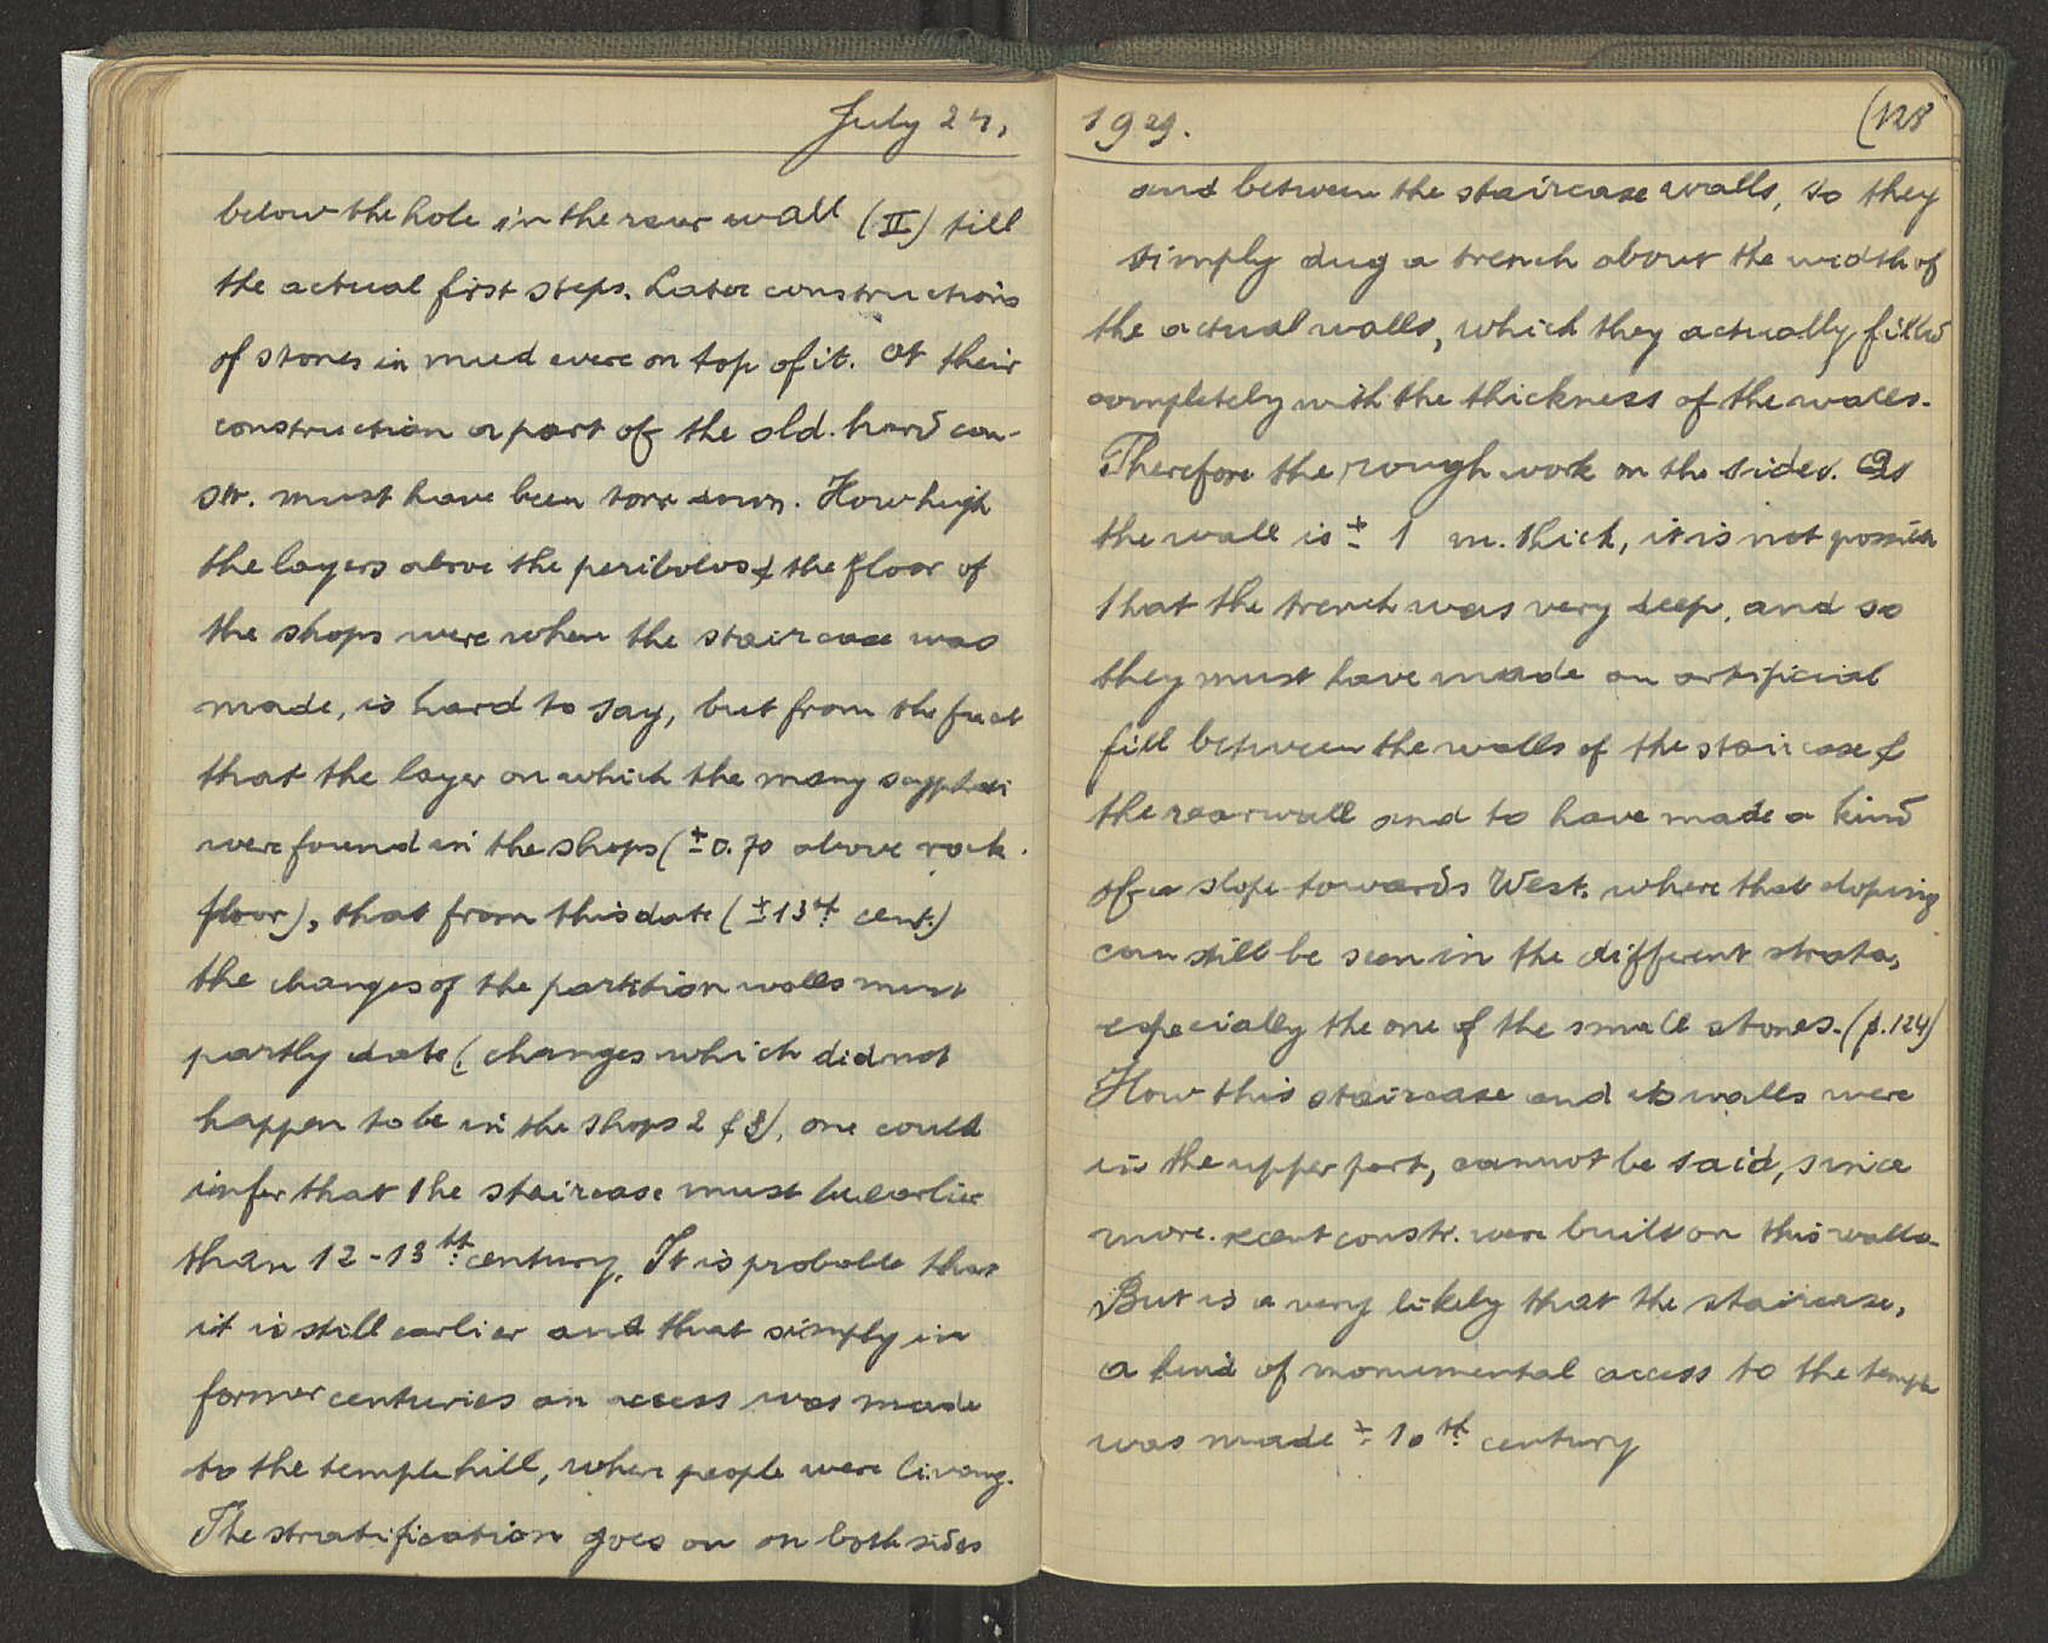 July 24,
below the hole in the rear wall (II) till
the actual first steps. Later constructions
of stones in mud were on top of it. At their
construction a part of the old hard con-
str. must have been torn down. How high
the layers above the peribolos & the floor of
the shops were when the staircase was
made, is hard to say, but from the fact
that the layer on which the many
were found in the shops (±0.70 above rock
floor), that from this date (±13th cent.)
the changes of the partition walls must
partly date (changes which did not
happen to be in the shops 2 & 3), one could
infer that the staircase must be earlier
than 12-13th century. It is probable that
it is still earlier and that simply in
former centuries an access was made
to the temple hill, where people were living.
The stratification goes on on both sides
1929.
(128
and between the staircase walls, so they
simply dug a trench about the width of
the actual walls, which they actually filled
completely with the thickness of the walls.
Therefore the rough work on the sides. As
the wall is ± 1 m. thick, it is not possible
that the trench was very deep, and so
they must have made an artificial
fill between the walls of the staircase &
the rearwall and to have made a kind
of a slope towards West. where that sloping
can still be seen in the different strata,
especially the one of the small stones. (p.124)
How this staircase and its walls were
in the upper part, cannot be said, since
more recent constr. were built on this walls.
But is a very likely that the staircase,
a kind of monumental access to the temple
was made ± 10th century